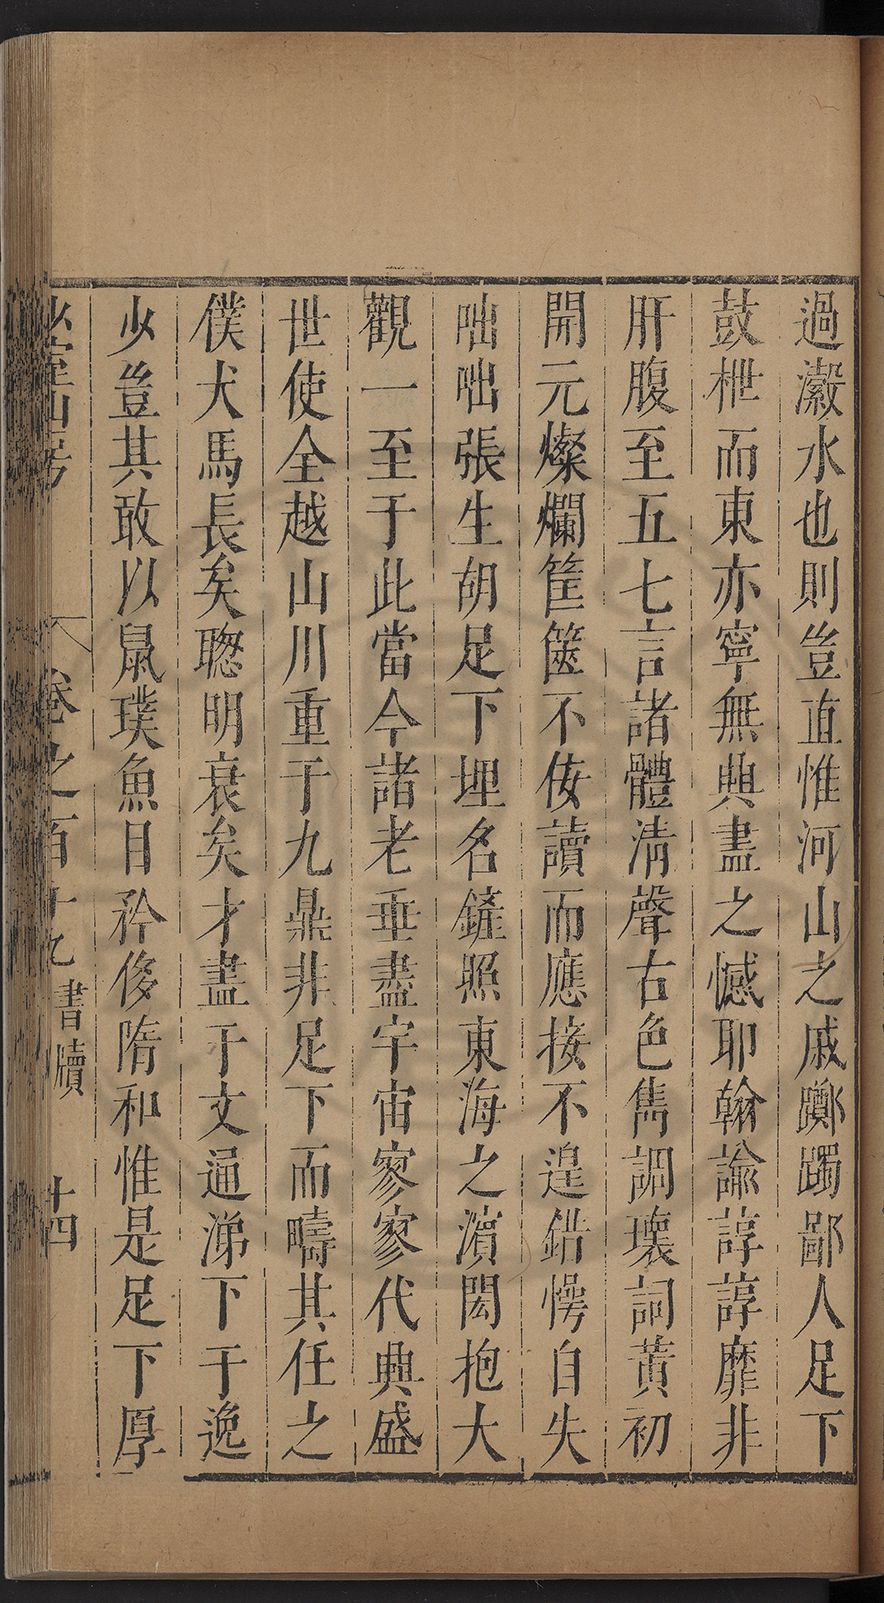 過瀫水也則豈直惟河山之戚躑躅鄙人足下
鼓枻而東亦寧無與盡之憾耶翰諭諄諄靡非
肝腹至五七言諸體清聲古色雋調瓌詞黃初
開元燦爛筐篋不佞讀而應接不遑錯愕自失
咄咄張生胡足下埋名鏟照東海之濱閎抱大
觀一至于此當今諸老垂盡宇宙寥寥代興盛
世使全越山川重于九鼎非足下而疇其任之
僕犬馬長矣聰明衰矣才盡于文通涕下于逸
少豈其敢以鼠璞魚目矜侈隋和惟是足下厚
少室山房 卷之百十九 書牘 十四